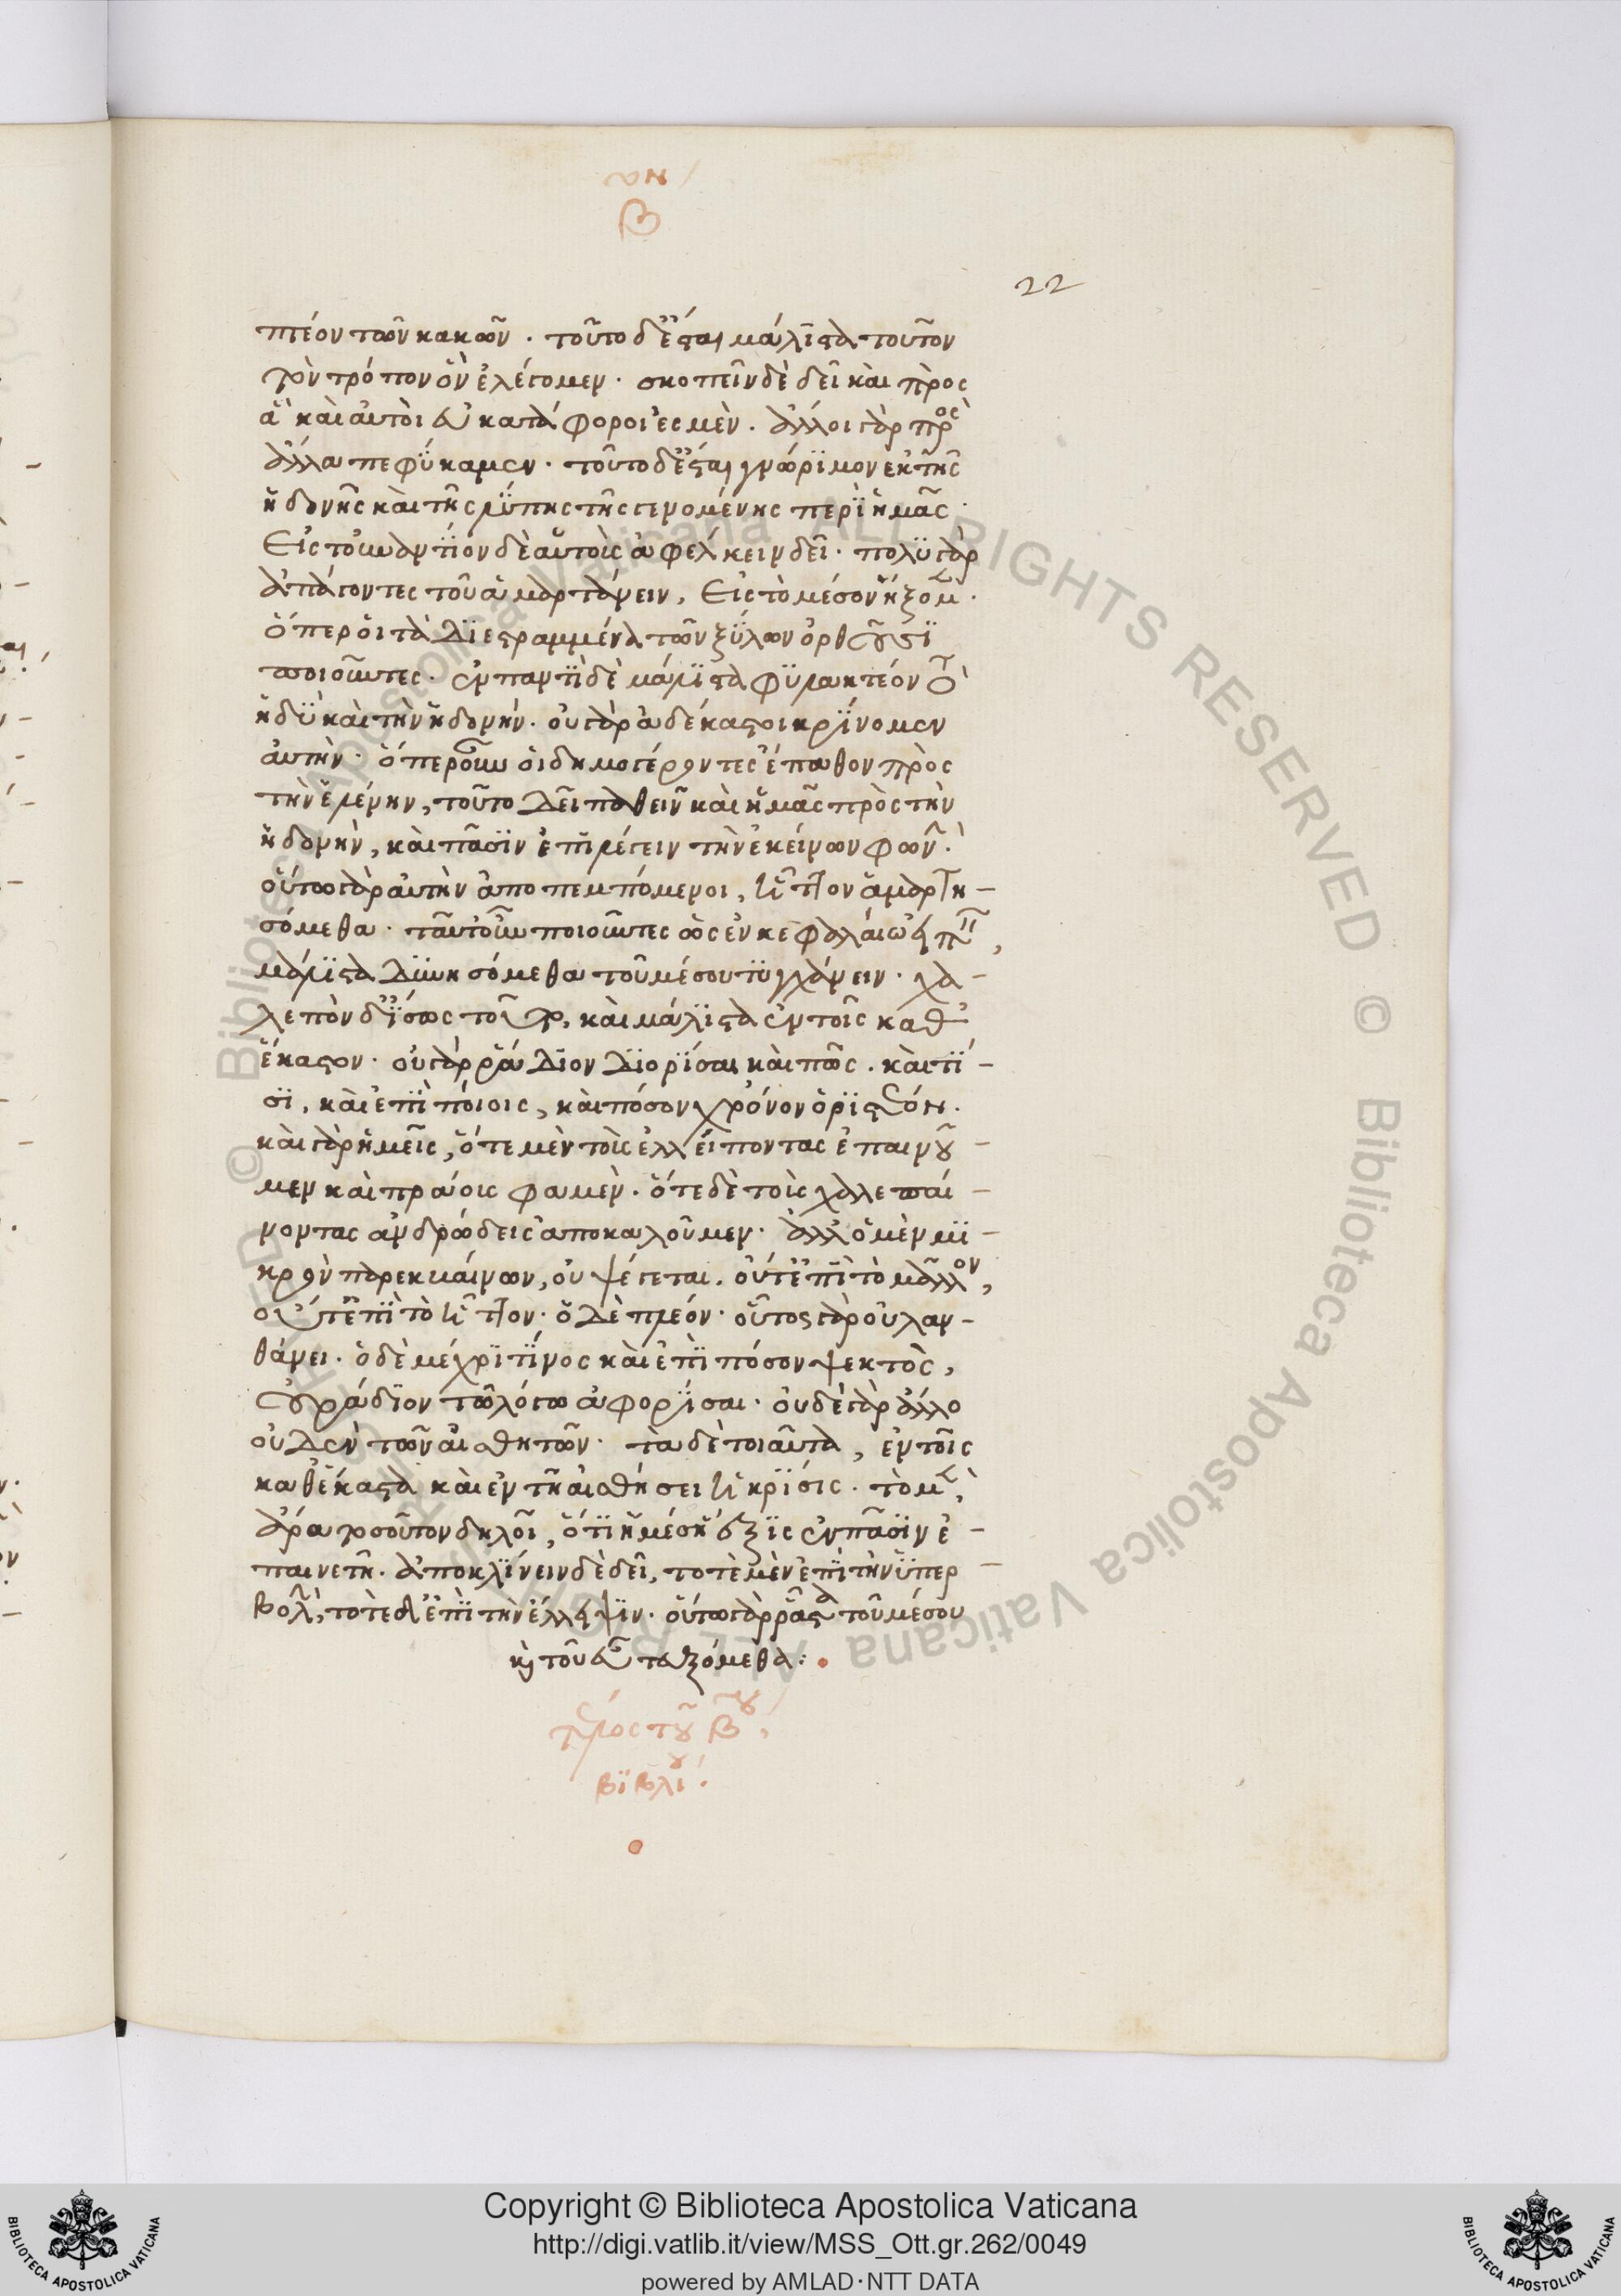 β
22
πτέον τῶν κακῶν. τοῦτο δ' ἔσται μάλιστα τοῦτον
τὸν τρόπον ὃν ἐλέγομεν. σκοπεῖν δὲ δεῖ καὶ πρὸς
ἃ καὶ αὐτοὶ εὐκατάφοροι ἐσμὲν. ἄλλοι γὰρ πρὸς
ἄλλα πεφύκαμεν. τοῦτο δ' ἔσται γνώριμον ἐκ τῆς
ἡδονῆς καὶ τῆς λύπης τῆς γινομένης περὶ ἡμᾶς.
Εἰς τοὐναντίον δὲ αὑτοὺς ἀφέλκειν δεῖ. πολὺ γὰρ
ἀπάγοντες τοῦ ἁμαρτάνειν, Εἰς τὸ μέσον ἥξομεν.
ὅπερ οἱ τὰ διεστραμμένα τῶν ξύλων ὀρθοῦντες
ποιοῦντες. ἐν παντὶ δὲ μάλιστα φυλακτέον τὸ
ἡδὺ καὶ τὴν ἡδονήν. οὐ γὰρ ἀδέκαστοι κρίνομεν
αὐτήν. ὅπερ οὖν οἱ δημογέροντες ἔπαθον πρὸς
τὴν ἑλένην, τοῦτο δεῖ παθεῖν καὶ ἡμᾶς πρὸς τὴν
ἡδονὴν, καὶ πᾶσιν ἐπιλέγειν τὴν ἐκείνων φων.
οὕτω γὰρ αὐτὴν ἀποπεμπόμενοι, ἧττον ἁμαρτη-
σόμεθα. ταῦτ' οὖν ποιοῦντες ὡς ἐν κεφαλαίω
μάλιστα δυνησόμεθα τοῦ μέσου τυγχάνειν. χα-
λεπὸν δ' ἴσως τοῦτο, καὶ μάλιστα ἐν τοῖς καθ'
ἕκαστον. οὐ γὰρ ῥάδιον διορίσαι καὶ πῶς. καὶ τί-
σι, καὶ ἐπὶ ποίοις, καὶ πόσον χρόνον ὀργιστέον.
καὶ γὰρ ἡμεῖς, ὁτὲ μὲν τοὺς ἐλλείποντας ἐπαινοῦ-
μεν καὶ πράους φαμὲν. ὁτὲ δὲ τοὺς χαλεπαί-
νοντας ἀνδρώδεις ἀποκαλοῦμεν. ἀλλ' ὁ μὲν μι-
κρὸν παρεκβαίνων, οὐ ψέγεται. οὔτ' ἐπὶ τὸ μᾶλλον,
οὔτ' ἐπὶ τὸ ἧττον. ὁ δὲ πλέον. οὗτος γὰρ οὐ λαν-
θάνει. ὁ δὲ μέχρι τίνος καὶ ἐπὶ πόσον ψεκτὸς,
οὐ ῥάδιον τῶ λόγω ἀφορίσαι. οὐδὲ γὰρ ἄλλο
οὐδὲν τῶν αἰσθητῶν. τὰ δὲ τοιαῦτα, ἐν τοῖς
καθέκαστα καὶ ἐν τῆ αἰσθήσει ἡ κρίσις. τὸ μὲν
ἄρα τοσοῦτον δηλοῖ, ὅτι ἡ μέση ἕξις ἐν πᾶσιν ἐ-
παινετή. ἀποκλίνειν δὲ δεῖ, τοτὲ μὲν ἐπὶ τὴν ὑπερ-
βολὴν, τοτὲ δ' ἐπὶ τὴν ἔλλειψιν. οὕτω γὰρ ῥᾶστα τοῦ μέσου
καὶ τοῦ εὖ τευξόμεθα:
τέλος τοῦ βου
βιβλίου.
Copyright © Biblioteca Apostolica Vaticana
http://digi.vatlib.it/view/MSS_Ott.gr.262/0049
powered by AMLAD·NTT DATA